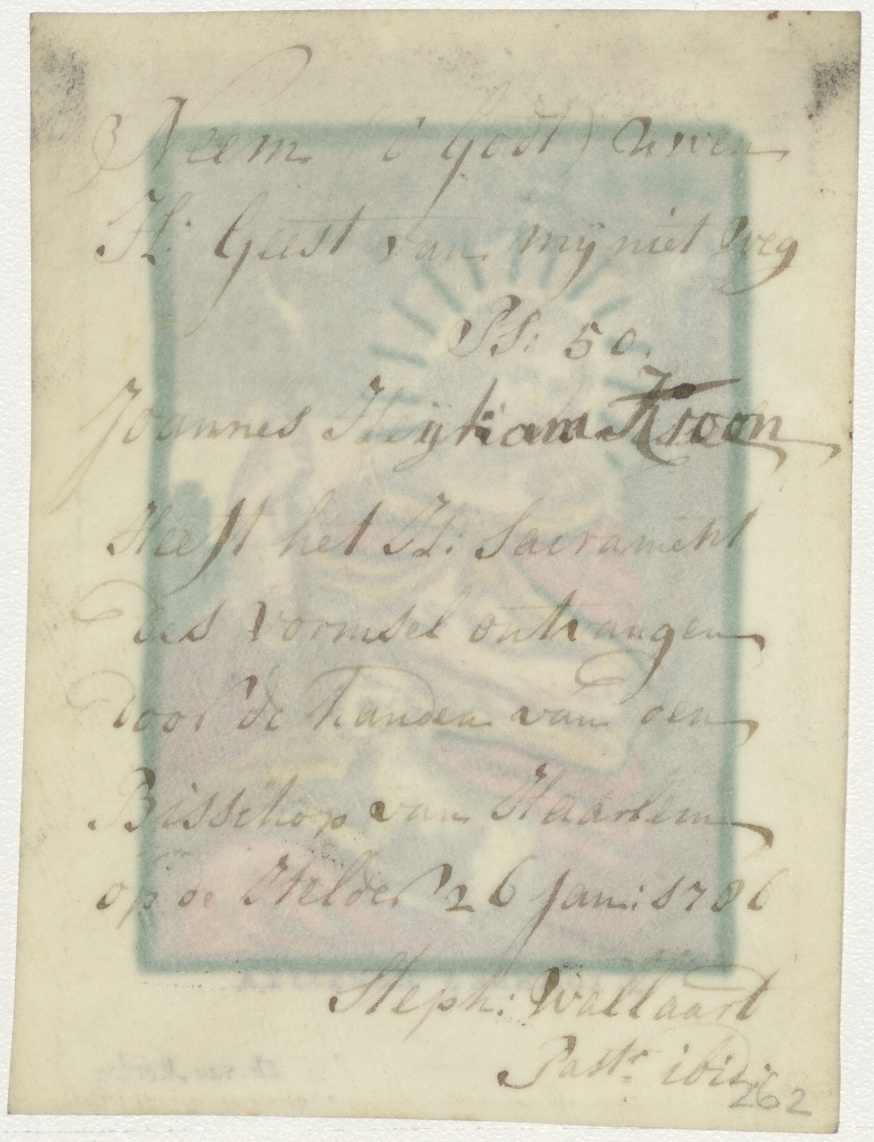 Neem (o' God) uwen
H: Geest van mij niet weg
Ps: 50.
Joannes Kroon
Heeft het H: Sacrament
des vormsel ontvangen
door de handen van den
Bisschop van Haarlem
op de Helder 26 Jan: 1786
Steph: Wallaart
Pastr ibid:
262